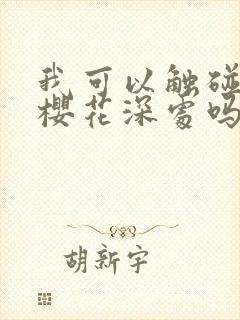 我可以触碰
樱花深处吗
胡新宇